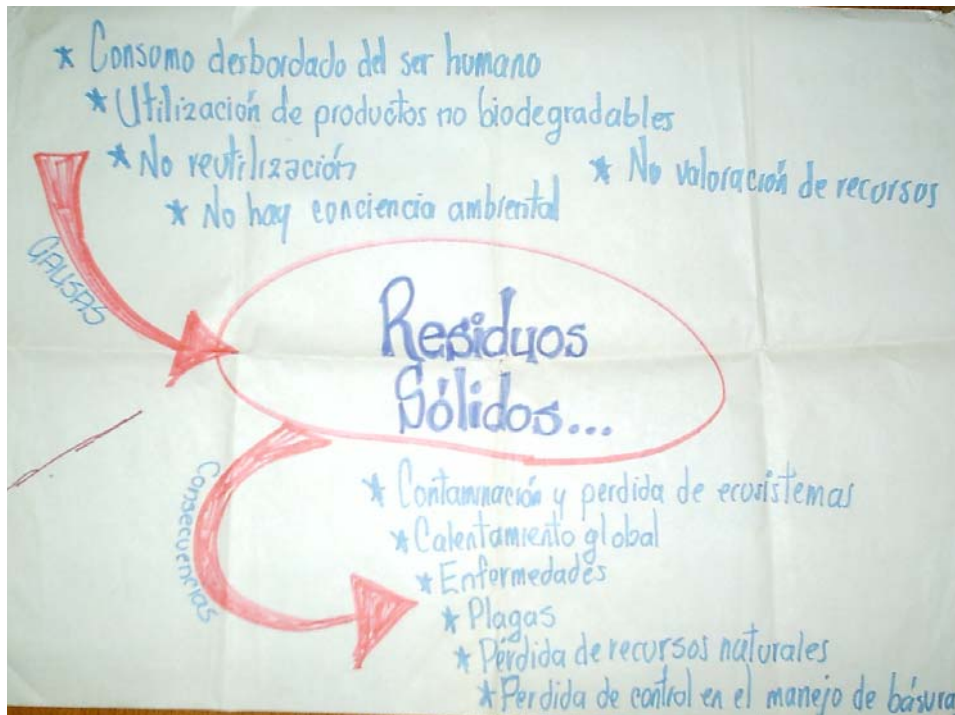 * Consumo desbordado del ser humano
* Utilización de productos no biodegradables
* No reutilización
* No valoración de recursos
* No hay conciencia ambiental
CAUSAS
Residuos
Sólidos...
Consecuencias
* Contaminación y perdida de ecosistemas
* Calentamiento global
* Enfermedades
* Plagas
* Pérdida de recursos naturales
* Perdida de control en el manejo de básura